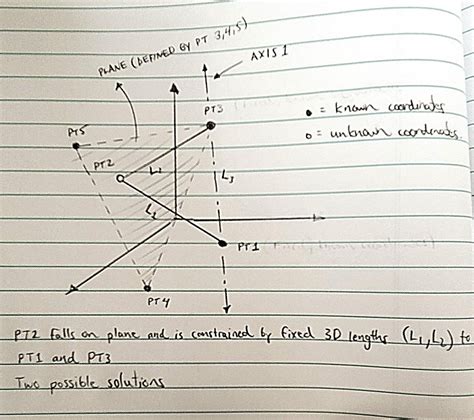 PLANE (DEFINED BY PT 3,4,5)
AXIS 1
PT3
● = known coordinates
○ = unknown coordinates
PT5
PT2
L2
L3
L1
PT1
PT4
PT2 falls on plane and is constrained by fixed 3D lengths (L1, L2) to
PT1 and PT3
Two possible solutions